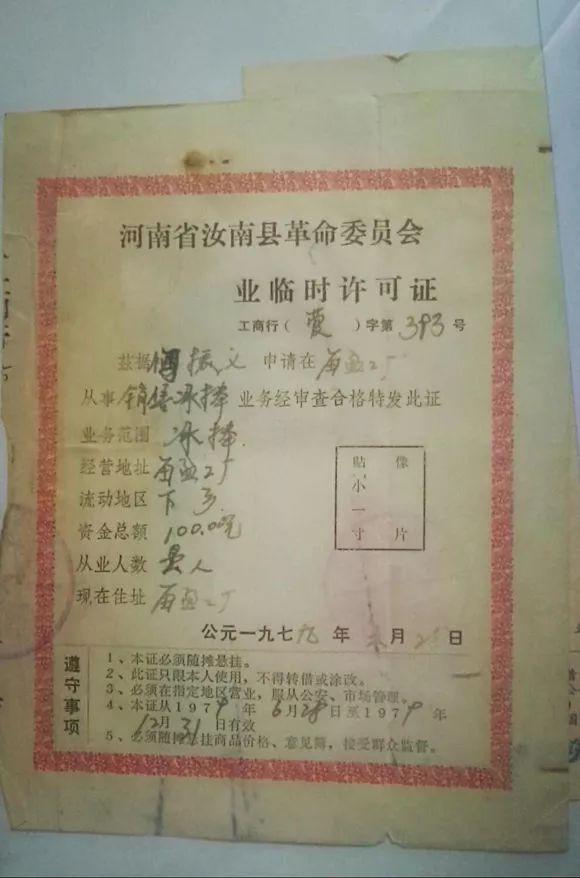 河南省汝南县革命委员会
业临时许可证
工商行( )字第393号
兹据 振义 申请在
从事销售冰棒业务经审查合格特发此证
业务范围 冰棒
经营地址
流动地区 下乡
资金总额 100.00元
从业人数 人
现在住址
贴像
小
一
寸片
公元一九七九年 六月28日
遵守事项
1、本证必须随摊悬挂。
2、此证只限本人使用，不得转借或涂改。
3、必须在指定地区营业，服从公安、市场管理。
4、本证从1979年6月28日至1979年
12月31日有效
5、必须随摊悬挂商品价格、意见簿，接受群众监督。